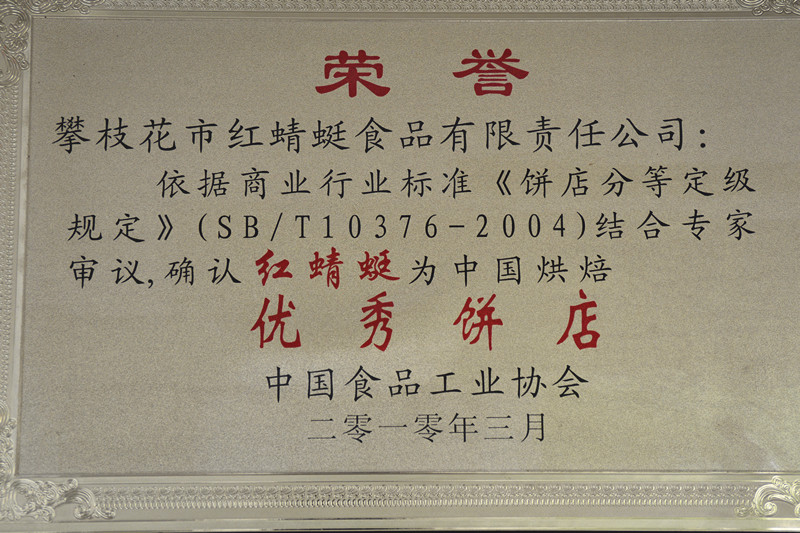 荣誉
攀枝花市红蜻蜓食品有限责任公司：
依据商业行业标准《饼店分等定级
规定》(SB/T10376-2004)结合专家
审议,确认红蜻蜓为中国烘焙
优秀饼店
中国食品工业协会
二零一零年三月